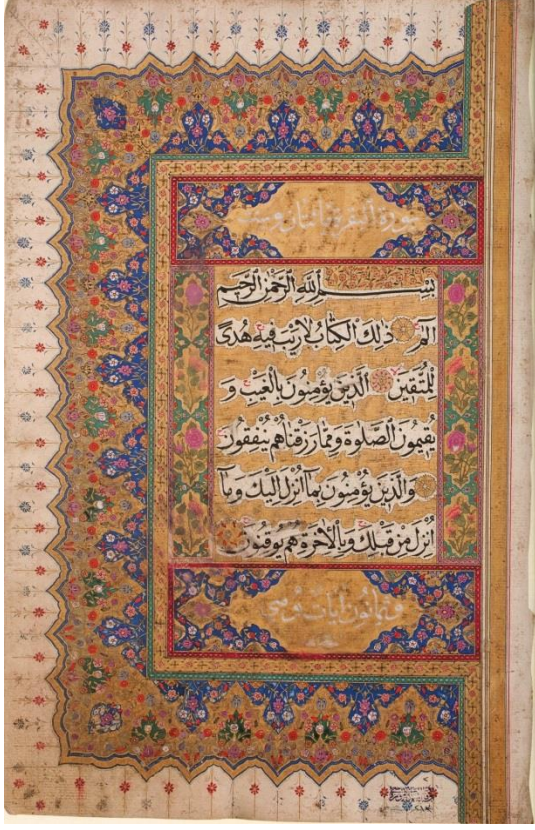 سورة البقرة مائتان وست
بِسْمِ اللهِ الرَّحْمٰنِ الرَّحِيمِ
الٓمٓ ذٰلِكَ الْكِتَابُ لَا رَيْبَ فِيهِ هُدًى
لِلْمُتَّقِينَ الَّذِينَ يُؤْمِنُونَ بِالْغَيْبِ وَ
يُقِيمُونَ الصَّلٰوةَ وَمِمَّا رَزَقْنَاهُمْ يُنْفِقُونَ
وَالَّذِينَ يُؤْمِنُونَ بِمَٓا اُنْزِلَ اِلَيْكَ وَمَٓا
اُنْزِلَ مِنْ قَبْلِكَ وَبِالْاٰخِرَةِ هُمْ يُوقِنُونَ
وثمانون ايات وهى